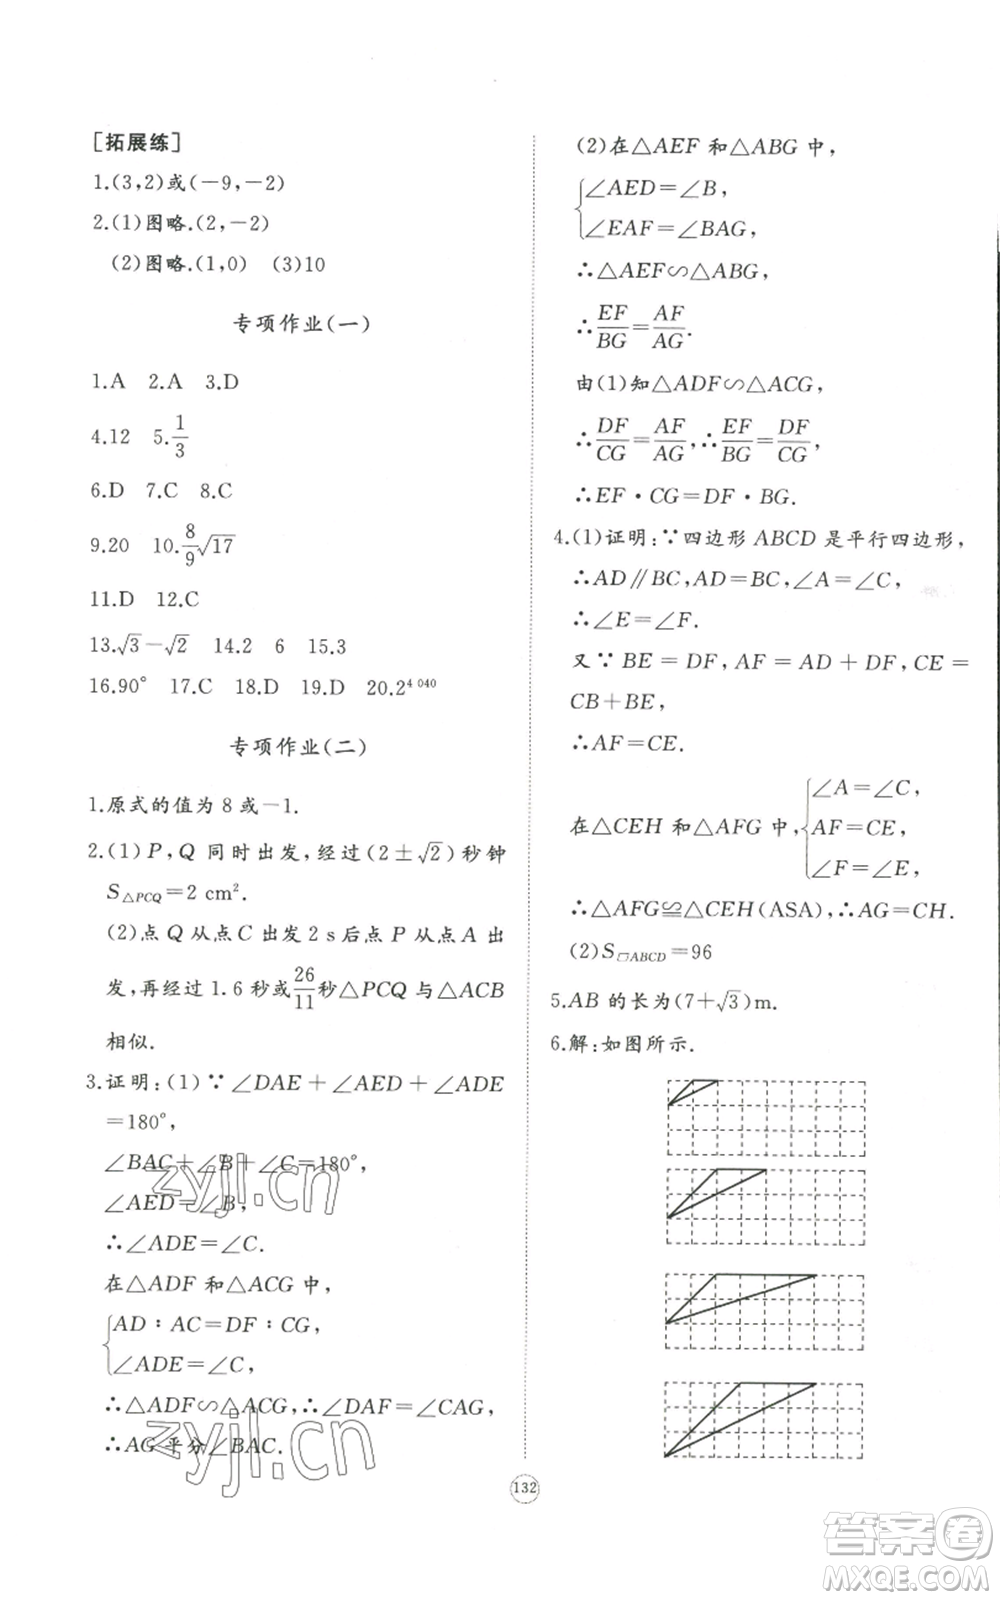 [拓展练]
1.(3,2)或(－9,－2)
2.(1)图略.(2,－2)
(2)图略.(1,0)　(3)10
专项作业(一)
1.A　2.A　3.D
4.12　5.1/3
6.D　7.C　8.C
9.20　10.8/9√17
11.D　12.C
13.√3－√2　14.2　6　15.3
16.90°　17.C　18.D　19.D　20.2^4 040
专项作业(二)
1.原式的值为 8 或－1.
2.(1)P,Q 同时出发,经过(2±√2)秒钟
S△PCQ＝2 cm².
(2)点 Q 从点 C 出发 2 s 后点 P 从点 A 出
发,再经过 1.6 秒或26/11秒△PCQ 与△ACB
相似.
3.证明:(1)∵∠DAE＋∠AED＋∠ADE
＝180°,
∠BAC＋∠B＋∠C＝180°,
∠AED＝∠B,
∴∠ADE＝∠C.
在△ADF 和△ACG 中,
{AD∶AC＝DF∶CG,
∠ADE＝∠C,
∴△ADF∽△ACG,∴∠DAF＝∠CAG,
∴AG 平分∠BAC.
(2)在△AEF 和△ABG 中,
{∠AED＝∠B,
∠EAF＝∠BAG,
∴△AEF∽△ABG,
∴EF/BG＝AF/AG.
由(1)知△ADF∽△ACG,
∴DF/CG＝AF/AG,∴EF/BG＝DF/CG,
∴EF·CG＝DF·BG.
4.(1)证明:∵四边形 ABCD 是平行四边形,
∴AD∥BC,AD＝BC,∠A＝∠C,
∴∠E＝∠F.
又∵BE＝DF,AF＝AD＋DF,CE＝
CB＋BE,
∴AF＝CE.
在△CEH 和△AFG 中,{∠A＝∠C,
AF＝CE,
∠F＝∠E,
∴△AFG≌△CEH(ASA),∴AG＝CH.
(2)S▱ABCD＝96
5.AB 的长为(7＋√3)m.
6.解:如图所示.
132
zyjl.cn
zyjl.cn
答案卷
MXQE.COM